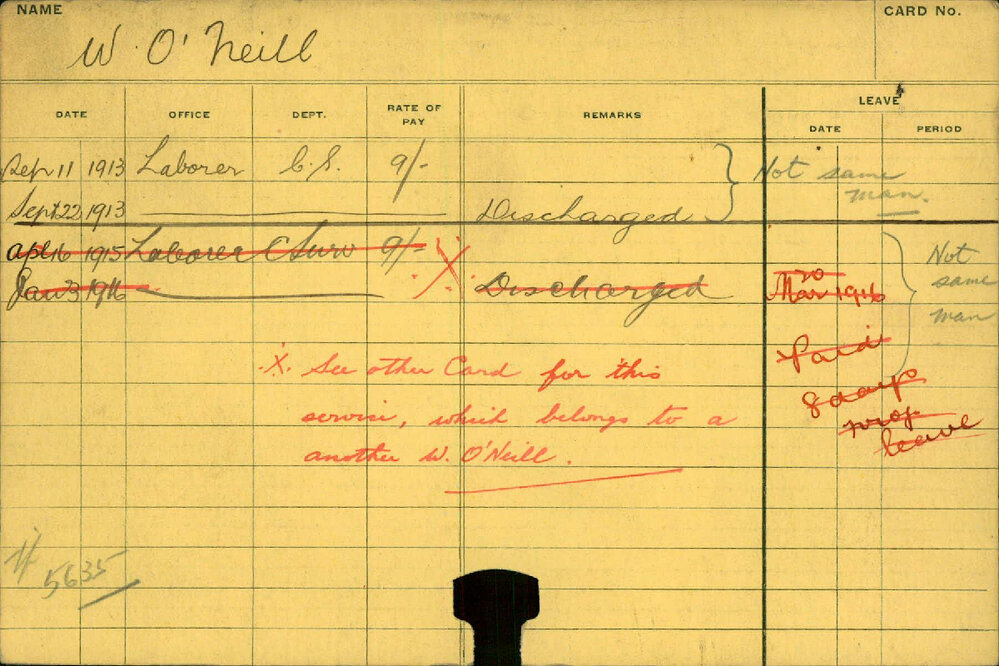 NAME
CARD No.
W. O'Neill
DATE OFFICE DEPT. RATE OF PAY REMARKS LEAVE
DATE PERIOD
Sep 11 1913 Laborer C.S. 9/- Not same
man.
Sept 22 1913 Discharged
Apl 16 1915 Laborer C Surv 9/- X Not
same
man
Jan 3 1916 Discharged 20
Mar 1916
Paid
8 days
prop
leave
X. See other Card for this
service, which belongs to a
another W. O'Neill.
5635